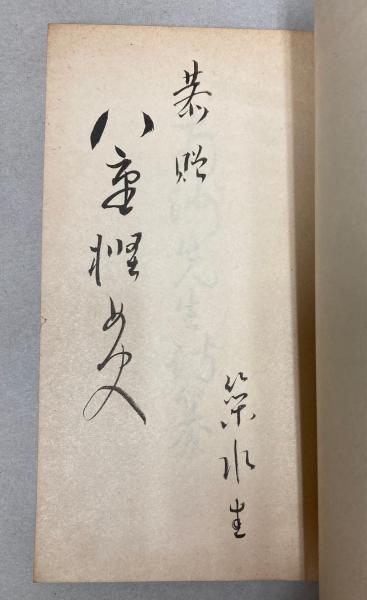 恭贈
八重樫女史
築水生